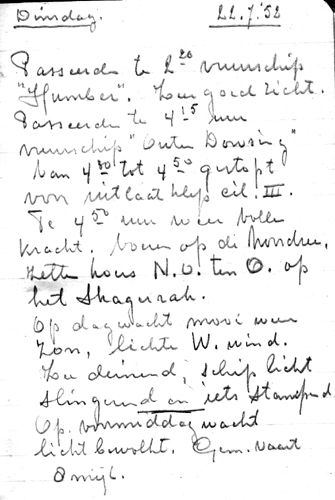 Dinsdag. 22.7.'52
Passeerden te 2 20 vuurschip
"Humber". Zeer goed zicht.
Passeerden te 4 15 uur
vuurschip "Outer Dowsing"
Van 4 30 tot 4 50 gestopt
voor uitlaatklep cil. III.
Te 4 50 uur weer volle
kracht. Voeren op de Noordzee,
zetten koers N.O. ten O. op
het Skagerak.
Op dagwacht mooi weer
Zon, lichte W. wind.
Zee deinend, schip licht
slingerend en iets stampend.
Op voormiddagwacht
licht bewolkt. Gem. vaart
8 mijl.